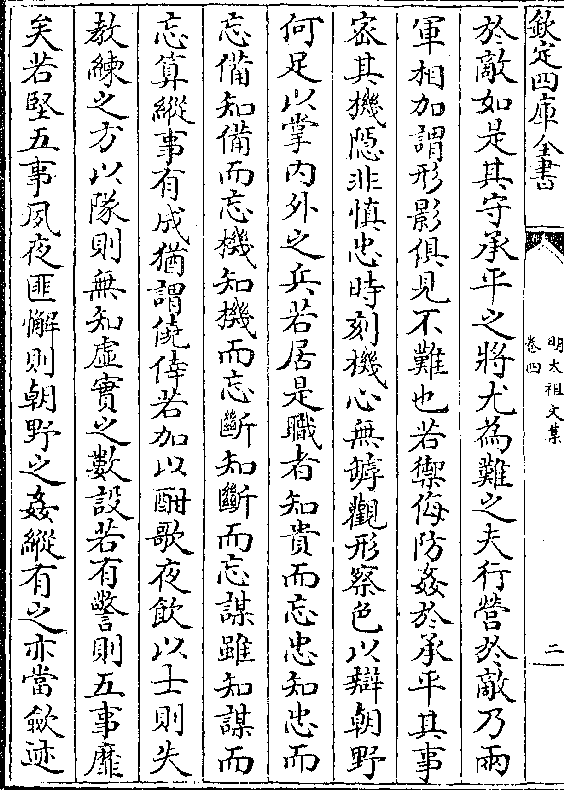 欽定四庫全書
明太祖文集
卷四
二
於敵如是其守承平之將尤為難之夫行營於敵乃兩
軍相加謂形影俱見不難也若禦侮防姦於承平其事
宻其機隱非慎忠時刻機心無罅觀形察色以辯朝野
何足以掌內外之兵若居是職者知貴而忘忠知忠而
忘備知備而忘機知機而忘斷知斷而忘謀雖知謀而
忘算縱事有成猶謂僥倖若加以酣歌夜飲以士則失
教練之方以隊則無知虛實之數設若有警則五事靡
矣若堅五事夙夜匪懈則朝野之姦縱有之亦當斂迹